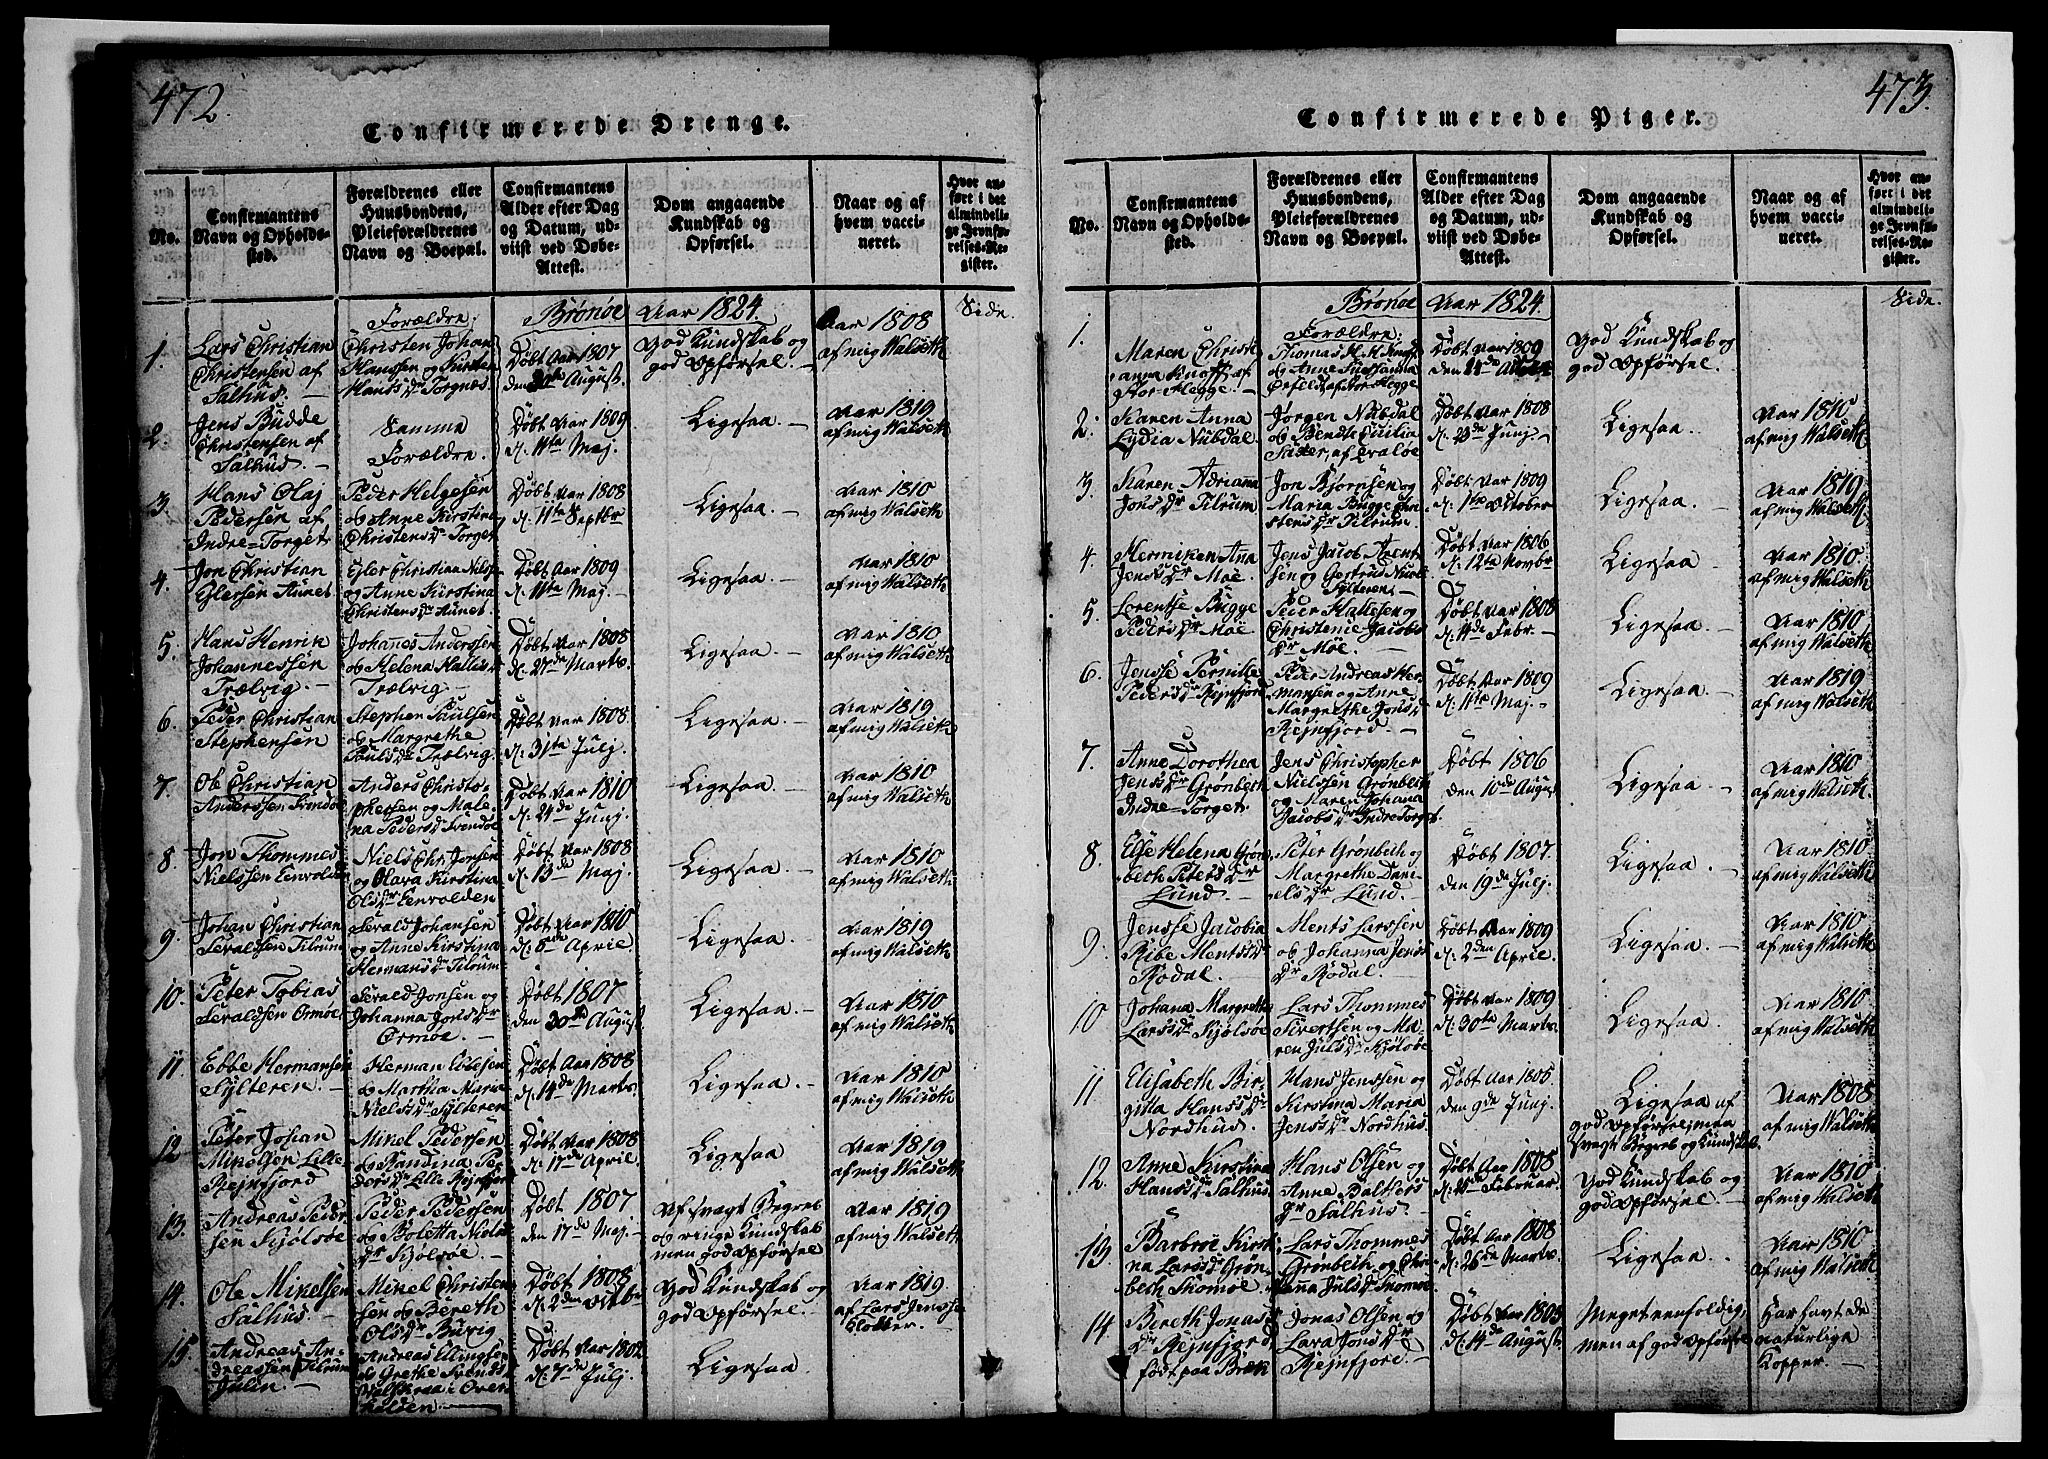 472
Confirmerede Drenge.
No.
Confirmantens
Navn og Opholds-
sted.
Forældrenes eller
Huusbondens,
Pleieforældrenes
Navn og Boepæl.
Confirmantens
Alder efter Dag
og Datum, ud-
viist ved Døbe-
Attest.
Dom angaaende
Kundskab og
Opførsel.
Naar og af
hvem vacci-
neret.
Hvor an-
ført i det
almindeli-
ge Jevnfø-
relses-Re-
gister.
Brønöe Aar 1824.
Side.
1.
Lars Christian
Christensen af
Salhus.
Forældre:
Christen Johan
Hanssen og Kirsten
Hans Dr Torgnæs
Døbt Aar 1807
den 30te August
God Kundskab og
god Opførsel.
Aar 1808
af mig Walseth
2.
Jens Budde
Christensen af
Salhus.
Samme
Forældre.
Døbt Aar 1809
d. 11te Maj.
Ligesaa.
Aar 1819
af mig Walseth
3.
Hans Olaj
Pedersen af
Indre-Torget
Peder Helgesen
og Anne Kirstina
Christens Dr Torget
Døbt Aar 1808
d. 11te Septbr
Ligesaa.
Aar 1810
af mig Walseth
4.
Jon Christian
Eylersen Aunet
Eyler Christian Nilsen
og Anne Kirstina
Christens Dr Aunet.
Døbt Aar 1809
d. 11te Maj.
Ligesaa.
Aar 1810
af mig Walseth
5.
Hans Henrik
Johannessen
Trælvig
Johannes Anderssen
og Helena
Trælvig
Døbt Aar 1808
d. 27de Marts.
Ligesaa.
Aar 1810
af mig Walseth
6.
Peder Christian
Stephensen
Stephen Paulsen
og Margrethe
Pauls Dr Trælvig
Døbt Aar 1808
d. 31te Julj.
Ligesaa.
Aar 1819
af mig Walseth
7.
Ole Christian
Anderssen
Anders Christo-
phersen og Male-
na Peders Dr
Døbt Aar 1810
d. 24de Junj.
Ligesaa.
Aar 1810
af mig Walseth
8.
Jon Thommes
Nielssen Eenvolden
Niels Chr. Jonsen
og Olava Kirstina
Ols Dr Eenvolden
Døbt Aar 1808
d. 13de Maj.
Ligesaa.
Aar 1810
af mig Walseth
9.
Johan Christian
Seraldsen Tilrum
Serald Johansen
og Anne Kirstina
Hermans Dr Tilrum
Døbt Aar 1810
April
Ligesaa.
Aar 1819
af mig Walseth
10.
Peter Tobias
Seraldsen Ormøe
Serald Jonsen og
Johanna Jons Dr
Ormøe.
Døbt 1807
den 30te August
Ligesaa.
Aar 1810
af mig Walseth
11.
Ebbe Hermansen
Sylteren.
Herman Ebbesen
og Martha Maria
Niels Dr Sylteren
Døbt Aar 1808
d. 14de Marts.
Ligesaa.
Aar 1810
af mig Walseth
12.
Peter Johan
Mikelsen Lille-
Rejnfjord
Mikel Pedersen
og Randina Pe-
ders Dr Lille Rejnfjord
Døbt Aar 1808
d. 17de April.
Ligesaa
Aar 1819
af mig Walseth
13.
Andreas Peder-
sen Kjølsøe
Peder Pedersen
og Boletta
Dr Kjølsøe
Døbt 1807
den 17de Maj.
Af svagt Begreb
og ringe Kundskab
men god Opførsel
Aar 1819
af mig Walseth
14.
Ole Mikelsen
Salhus.
Mikel Christen-
sen og Bereth
Ols Dr
Døbt 1808
d. 2den Octbr
God Kundskab og
god Opførsel.
Aar 1819
af Lars Jenssen
Klokker.
15.
Andreas An-
dreassen Tilrum
Julin.
Andreas Ellingsen
og Grethe Svends Dr
i Over
halden.
Døbt Aar 1802
d. 7de Julj.
Ligesaa
473.
Confirmerede Piger.
No.
Confirmantens
Navn og Opholds-
sted.
Forældrenes eller
Huusbondens,
Pleieforældrenes
Navn og Boepæl.
Confirmantens
Alder efter Dag
og Datum, ud-
viist ved Døbe-
Attest.
Dom angaaende
Kundskab og
Opførsel.
Naar og af
hvem vacci-
neret.
Hvor an-
ført i det
almindeli-
ge Jevnfø-
relses-Re-
gister.
Brønöe Aar 1824.
Side.
1.
Maren Christi-
anna Knoff af
Stor-Hegge.
Forældre:
Thomas H. M. Knoff
og Anne Sussanna
af Stor-Hegge
Døbt Aar 1809
God Kundskab og
god Opførsel.
2.
Karen Anna
Lydia Nubdal
Jørgen Nubdal
og Bendte Cecilia
Døbt Aar 1808
d. 23de Junj.
Ligesaa.
Aar
af mig Walseth
3.
Karen Adrianna
Jons Dr Tilrum
Jon Bjørnsen og
Maria Bugge Chri-
stens Dr Tilrum.
Døbt Aar 1809
d. 1te October
Ligesaa.
Aar 1819
af mig Walseth.
4.
Hermiken Ana
Jens Dr Moe.
Jens Jacob Arent-
sen og Gertrud
Sylteren
Døbt Aar 1806
d. 12te Novbr
Ligesaa.
Aar 1810.
af mig Walseth
5.
Lorentse Bugge
Peders Dr Moe
Peder Hallesen og
Christenie Jacobs
Dr Moe.
Døbt Aar 1808
Febr.
Ligesaa.
Aar 1810
af mig Walseth
6.
Jensse Pernille
Peders Dr Rejnfjord
Peder Andreas Her-
mansen og Anne
Margrethe Jons Dr
Rejnfjord.
Døbt Aar 1809
d. 11te Maj.
Ligesaa.
Aar 1819
af mig Walseth
7.
Anne Dorothea
Jens Dr Grønbech
Indre-Torget.
Jens Christopher
Nielssen Grønbech
og Maren Johana
Jacobs Dr Indre Torget
Døbt 1806
den 10de August
Ligesaa.
Aar 1810
af mig Walseth
8.
Else Helena Grøn-
bech Peters Dr
Lund.
Peter Grønbech og
Margrethe Dani-
els Dr Lund.
Døbt 1807.
den 19de Julj.
Ligesaa.
Aar 1810
af mig Walseth
9.
Jensse Jacobia
Ribe Ments Dr
Rødal.
Ments Larssen
og Johanna Jens
Dr Rødal
Døbt Aar 1809
d. 2den April.
Ligesaa
Aar 1810
af mig Walseth
10
Johana Margrethe
Lars Dr Kjølsøe
Lars Thommes
Sivertsen og Ma-
ren Juls Dr Kjølsøe
Døbt Aar 1809
d. 30te Marts.
Ligesaa.
Aar 1810
af mig Walseth
11.
Elisabeth Bir-
gitta Hans Dr
Nordhus.
Hans Jenssen og
Kirstina Maria
Jens Dr Nordhus.
Døbt Aar 1805
den 9de Junj.
Ligesaa af
god Opførsel, men
svagt Begreb og Kundskab
Aar 1808
af mig Walseth
12.
Anne Kirstina
Hans Dr Salhus.
Hans Olsen og
Anne Balthers
Dr Salhus.
Døbt Aar 1808
Februar
God Kundskab og
god Opførsel
Aar 1810
af mig Walseth
13.
Barbroe Kirsti-
na Lars Dr Grøn-
bech Thomøe.
Lars Thommes
Grønbech og Chri-
anna Juls Dr Thomøe
Døbt Aar 1808
d. 26de Marts.
Ligesaa.
Aar 1810
af mig Walseth
14
Bereth Jonas
Dr Rejnfjord
født paa
Jonas Olsen og
Lara Jons Dr
Rejnfjord.
Døbt Aar 1805
d. 14de August
Meget eenfoldig,
men af god Opførsel
Har havt de
naturlige
Kopper.